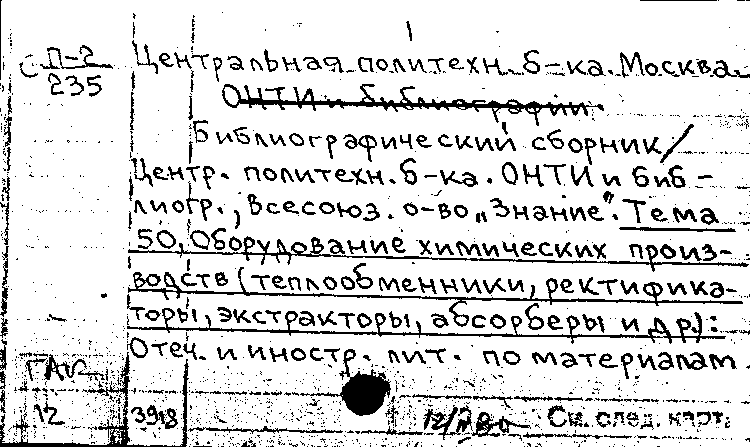 С П-2
235
Центральная политехн. б-ка. Москва.
ОНТИ и библиографии.
Библиографический сборник/
Центр. политехн. б-ка. ОНТИ и биб-
лиогр., Всесоюз. о-во „Знание". Тема
50, Оборудование химических произ-
водств (теплообменники, ректифика-
торы, экстракторы, абсорберы и др.):
Отеч. и иностр. лит. по материалам
12
3918
См. след. карт.